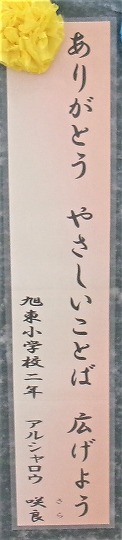 ありがとう　やさしいことば　広げよう
旭東小学校二年　アルシャロウ　咲良
さら